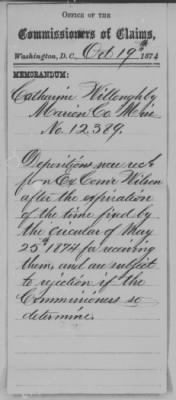 OFFICE OF THE
Commissioners of Claims,
Washington, D.C. Oct 19th 1874
MEMORANDUM:
Catharine Willoughby
Marion Co. Miss
No. 12.389.
Depositions were recd
from Ex Comr Wilson
after the expiration
of the time fixed by
the circular of May
25th 1874 for receiving
them, and are subject
to rejection if the
Commissioners so
determine.